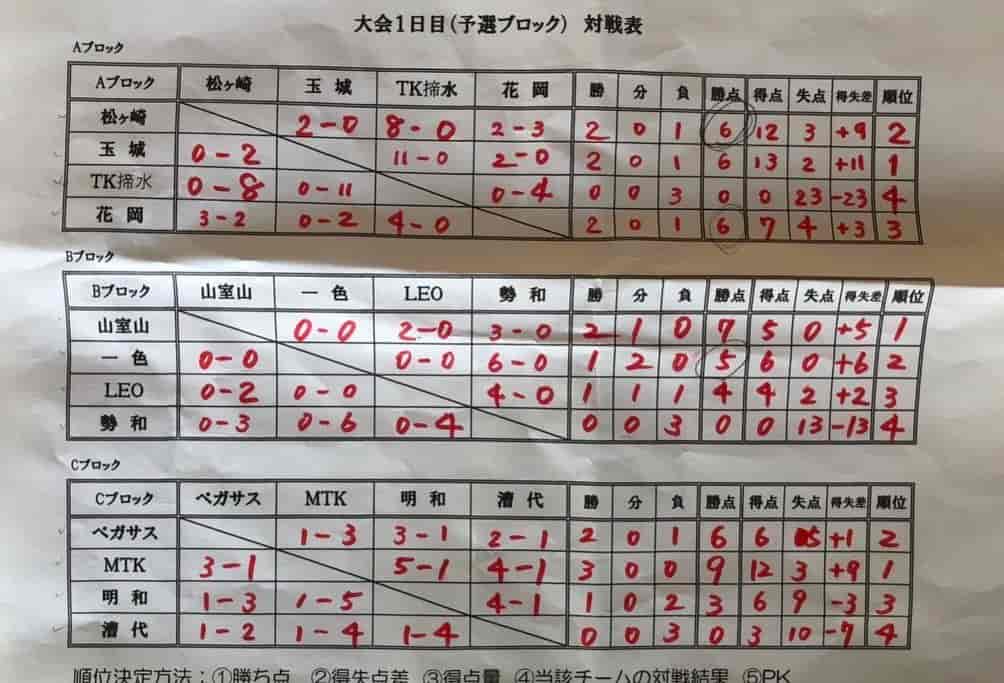 大会1日目(予選ブロック) 対戦表
Aブロック
Aブロック 松ヶ崎 玉城 TK掃水 花岡 勝 分 負 勝点 得点 失点 得失差 順位
松ヶ崎 2-0 8-0 2-3 2 0 1 6 12 3 +9 2
玉城 0-2 11-0 2-0 2 0 1 6 13 2 +11 1
TK掃水 0-8 0-11 0-4 0 0 3 0 0 23 -23 4
花岡 3-2 0-2 4-0 2 0 1 6 7 4 +3 3
Bブロック
Bブロック 山室山 一色 LEO 勢和 勝 分 負 勝点 得点 失点 得失差 順位
山室山 0-0 2-0 3-0 2 1 0 7 5 0 +5 1
一色 0-0 0-0 6-0 1 2 0 5 6 0 +6 2
LEO 0-2 0-0 4-0 1 1 1 4 4 2 +2 3
勢和 0-3 0-6 0-4 0 0 3 0 0 13 -13 4
Cブロック
Cブロック ペガサス MTK 明和 漕代 勝 分 負 勝点 得点 失点 得失差 順位
ペガサス 1-3 3-1 2-1 2 0 1 6 6 5 +1 2
MTK 3-1 5-1 4-1 3 0 0 9 12 3 +9 1
明和 1-3 1-5 4-1 1 0 2 3 6 9 -3 3
漕代 1-2 1-4 1-4 0 0 3 0 3 10 -7 4
順位決定方法:①勝ち点 ②得失点差 ③得点量 ④当該チームの対戦結果 ⑤PK